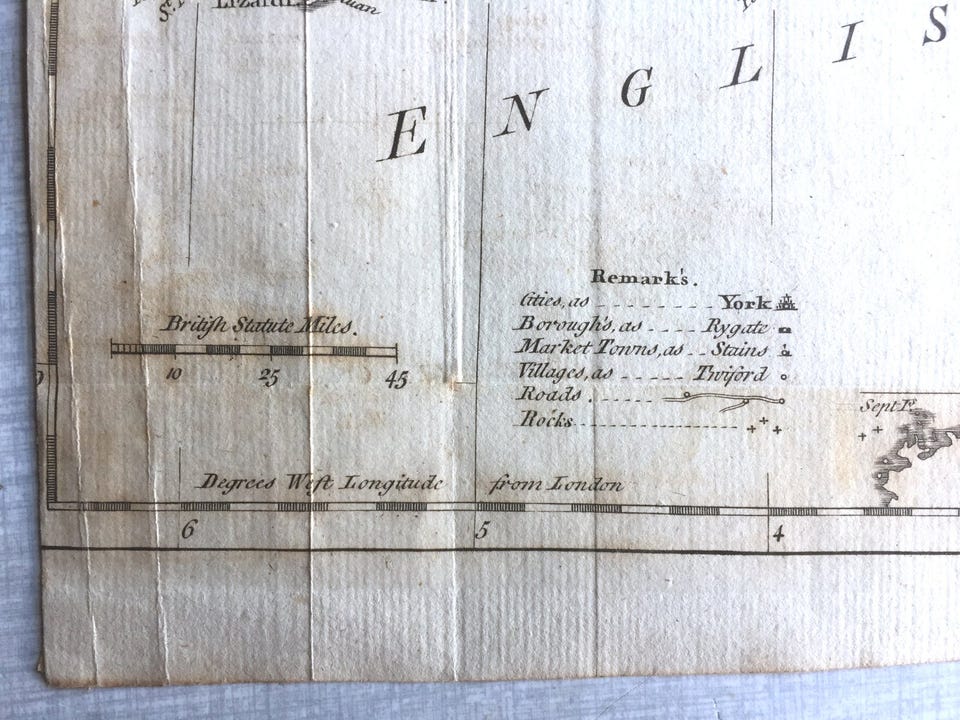 Lizard
E N G L I S
Remark's.
Cities, as York
Borough's, as Rygate
Market Towns, as Stains
Villages, as Twiford
Roads.
Rocks
British Statute Miles.
10 25 45
Sept I.
Degrees West Longitude from London
6 5 4